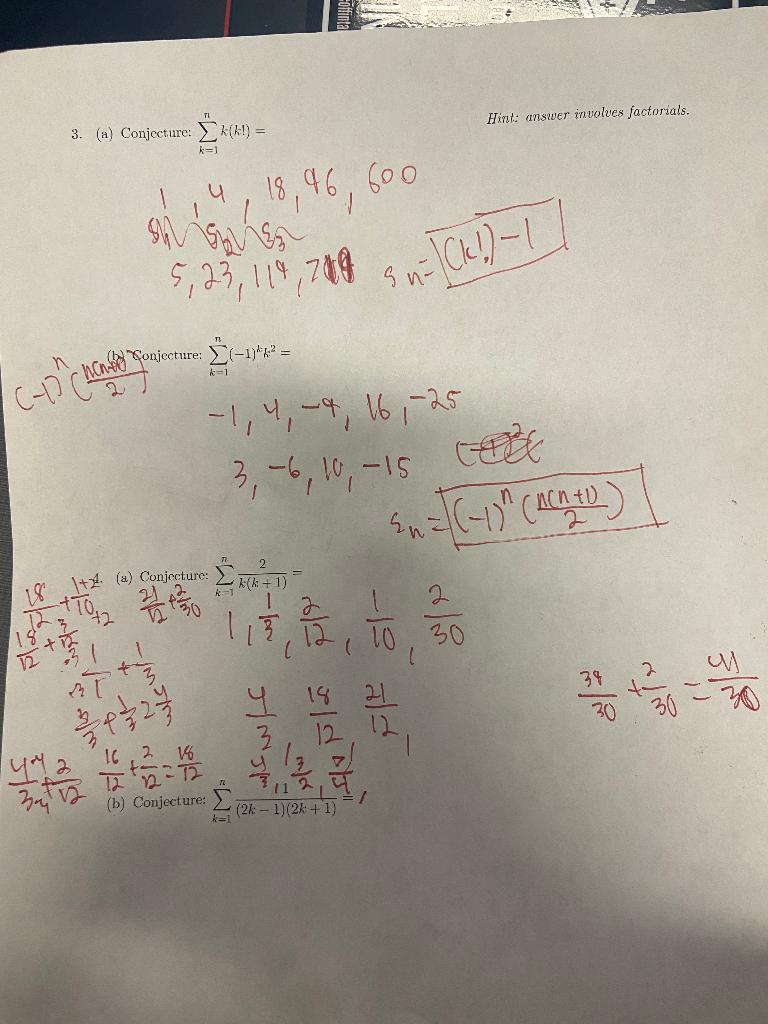 3. (a) Conjecture: \sum_{k=1}^{n} k(k!) =
Hint: answer involves factorials.
1, 4, 18, 96, 600
5, 23, 119, 719
s_n = (k!) - 1
(b) Conjecture: \sum_{k=1}^{n} (-1)^k k^2 =
(-1)^n (n(n+1)/2)
-1, 4, -9, 16, -25
3, -6, 10, -15
s_n = (-1)^n (n(n+1)/2)
4. (a) Conjecture: \sum_{k=1}^{n} 2/(k(k+1)) =
18/12 + 1/10
21/12 + 2/30
1, 1/3, 2/12, 1/10, 2/30
18/12 + 3/12
1/1 + 1/3
39/30 + 2/30 = 41/30
4/3 18/12 21/12,
3/3 + 1/3 = 4/3
4/3 + 2/12
16/12 + 2/12 = 18/12
4/3, 3/2, 7/4,
(b) Conjecture: \sum_{k=1}^{n} 1/((2k-1)(2k+1)) =